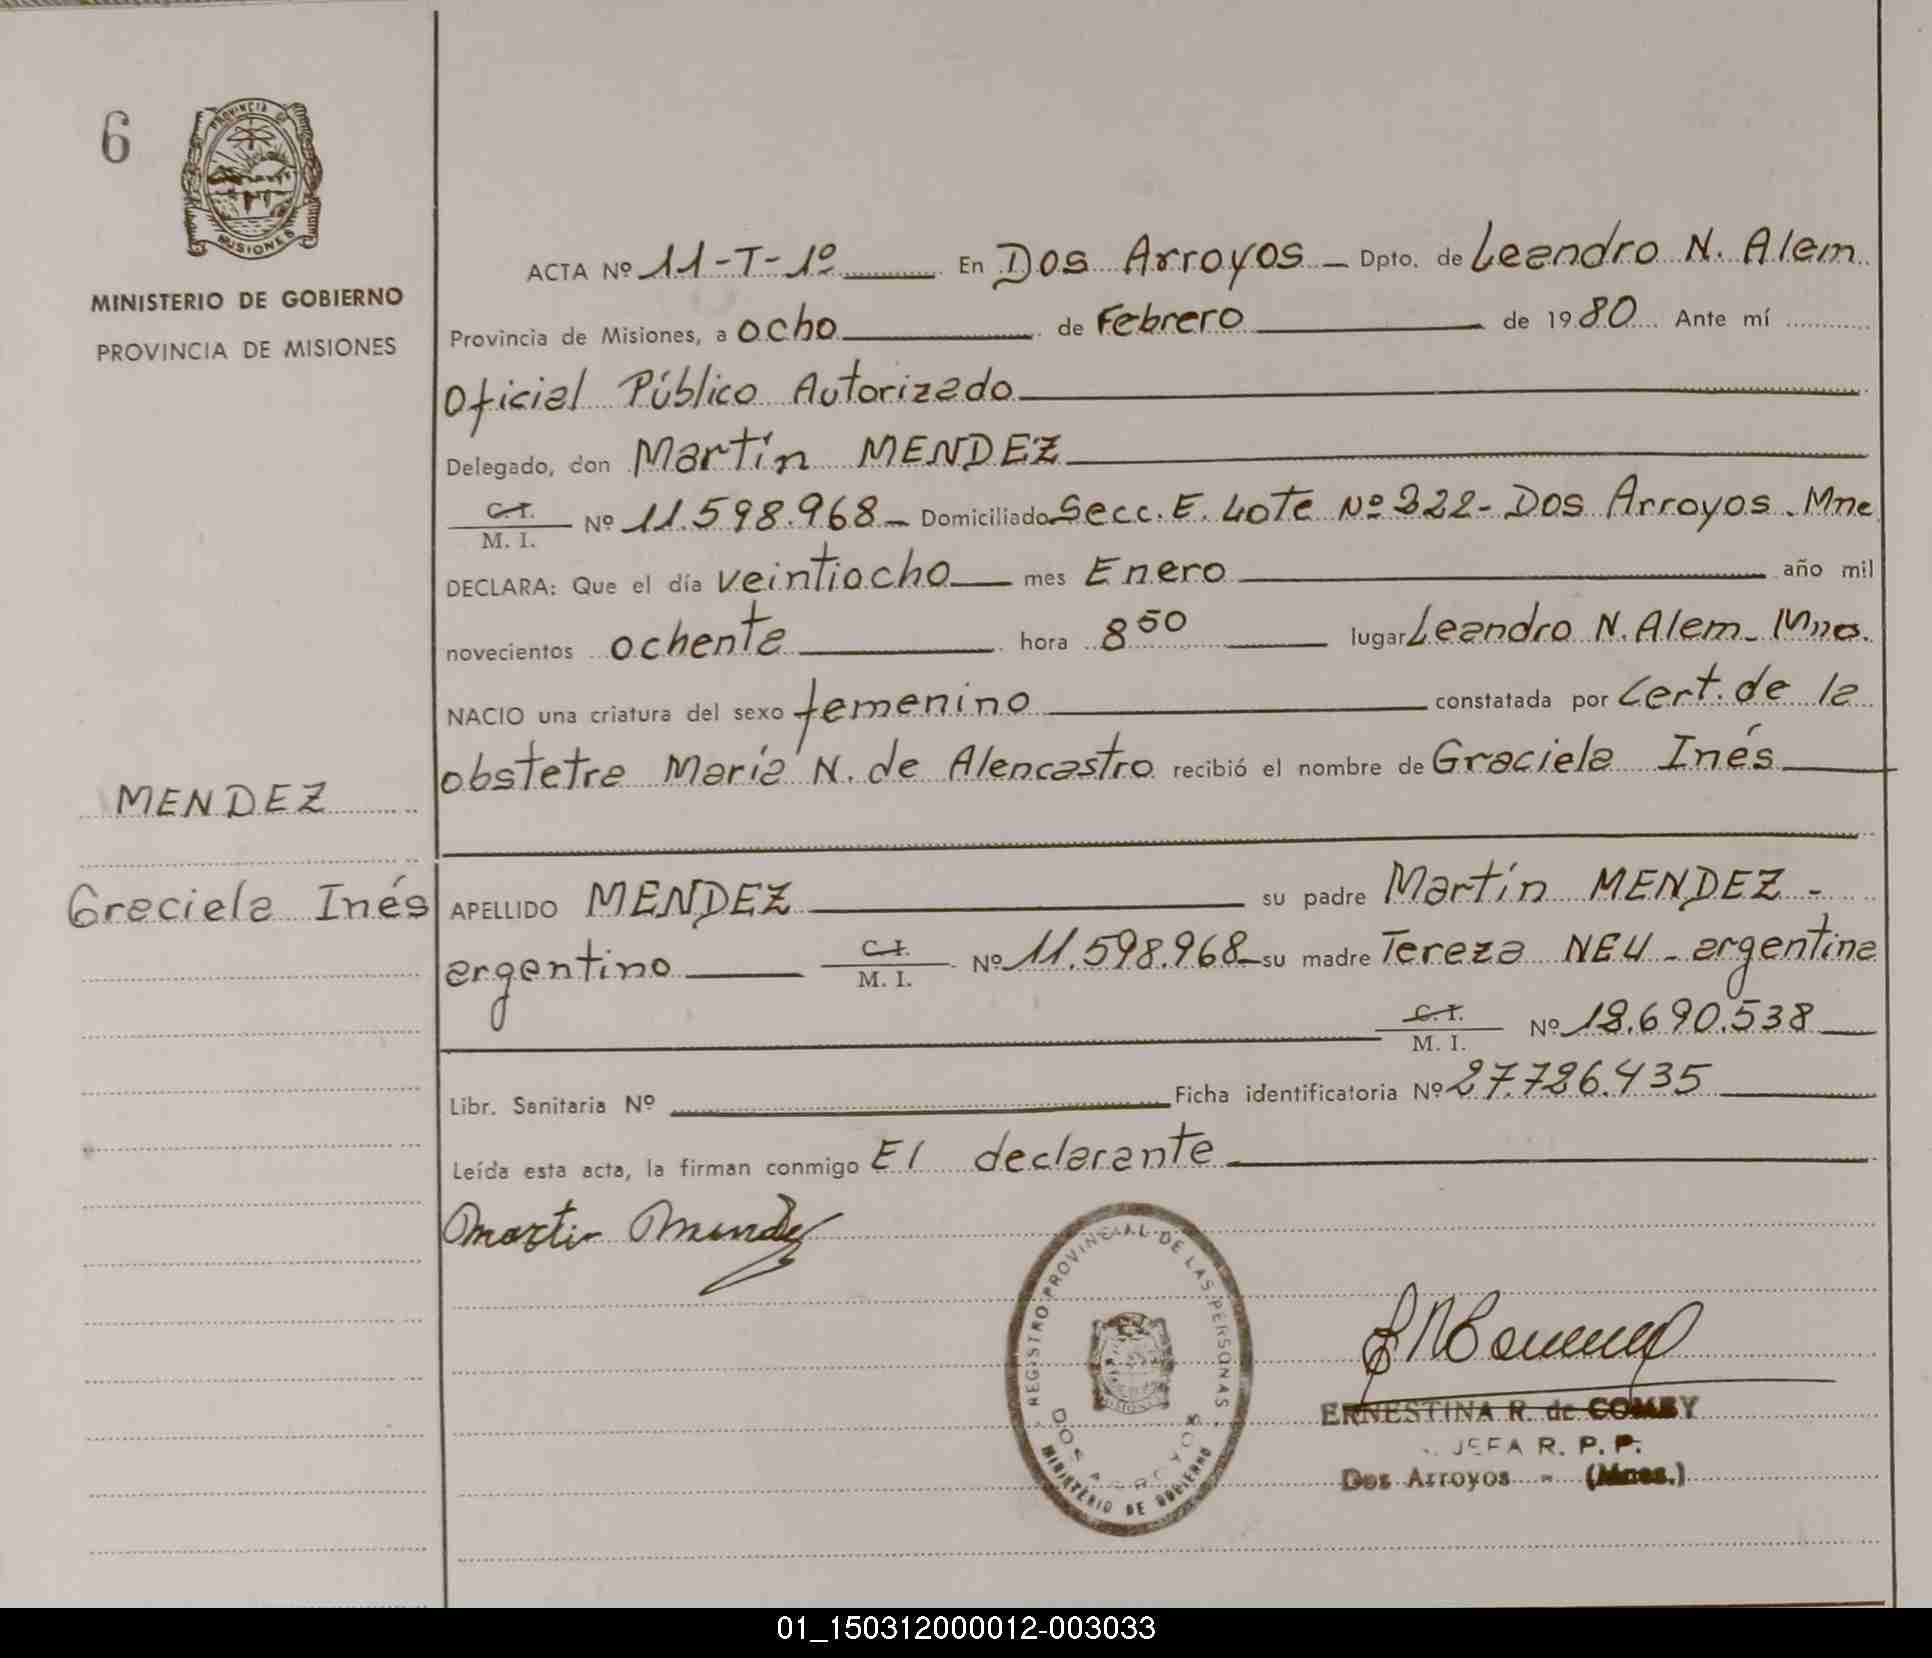 6
PROVINCIA DE
MISIONES
MINISTERIO DE GOBIERNO
PROVINCIA DE MISIONES
MENDEZ
Graciela Inés
ACTA Nº 11-T-1º En Dos Arroyos Dpto. de Leandro N. Alem
Provincia de Misiones, a ocho de Febrero de 1980 Ante mí
Oficial Público Autorizado
Delegado, don Martín MENDEZ
C.I. / M. I. Nº 11.598.968 Domiciliado Secc. E. Lote Nº 222- Dos Arroyos. Mne
DECLARA: Que el día veintiocho mes Enero año mil
novecientos ochenta hora 8 50 lugar Leandro N. Alem - Mnes.
NACIO una criatura del sexo femenino constatada por Cert. de la
obstetra María N. de Alencastro recibió el nombre de Graciela Inés
APELLIDO MENDEZ su padre Martín MENDEZ -
argentino C.I. / M. I. Nº 11.598.968 su madre Tereza NEU - argentina
C.I. / M. I. Nº 18.690.538
Libr. Sanitaria Nº Ficha identificatoria Nº 27.726.435
Leída esta acta, la firman conmigo El declarante
Martin Mendez
REGISTRO PROVINCIAL DE LAS PERSONAS
DOS ARROYOS
MINISTERIO DE GOBIERNO
ERNESTINA R. de COMBY
JEFA R. P. P.
Dos Arroyos - (Mnes.)
01_150312000012-003033